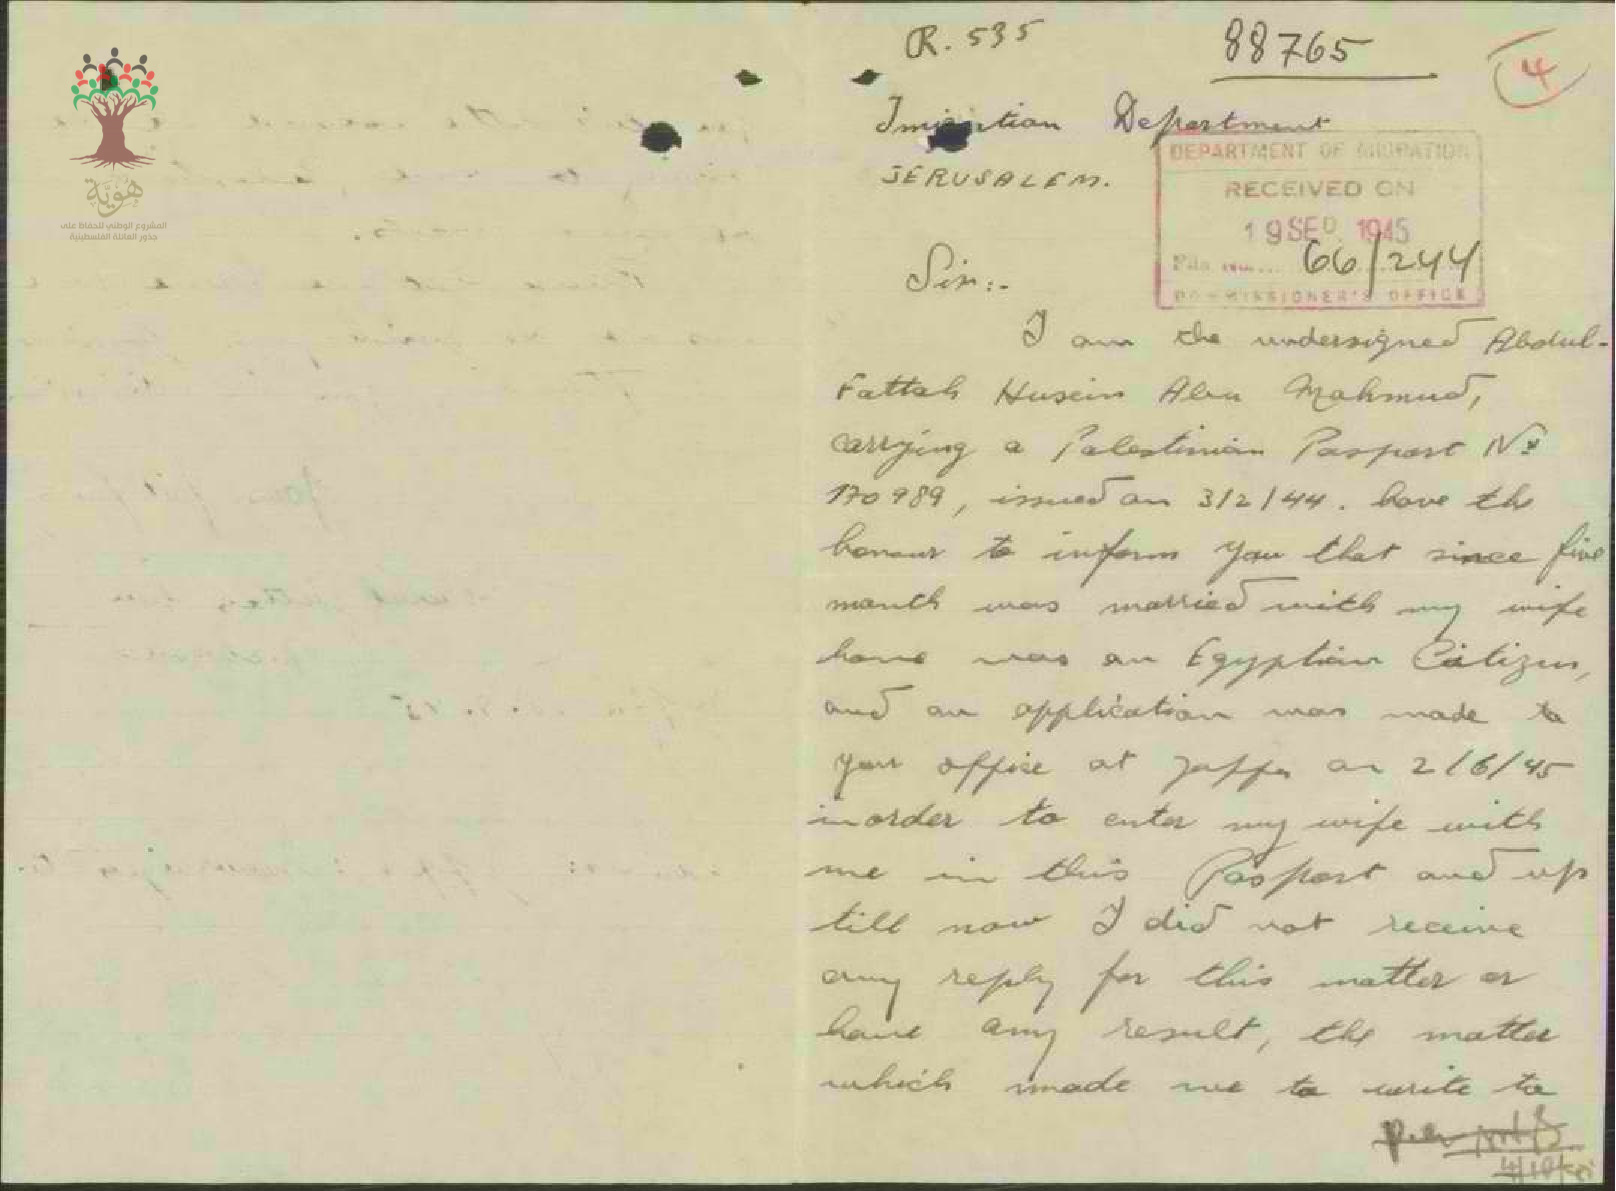 R. 535
88765
4
Imigrtian Department
JERUSALEM.
DEPARTMENT OF MIGRATION
RECEIVED ON
19 SEP 1945
File No. 66/244
COMMISSIONER'S OFFICE
Sir:-
I am the undersigned Abdul-
Fattah Husein Abu Mahmud,
carrying a Palestinian Pasport No
170989, issued on 3/2/44. have the
honour to inform you that since five
month was married with my wife
have was an Egyptian Citizen,
and an application was made to
your office at Jaffa on 2/6/45
in order to enter my wife with
me in this Pasport and up
till now I did not receive
any reply for this matter or
have any result, the matter
which made me to write to
4/10/45
هوية
المشروع الوطني للحفاظ على
جذور العائلة الفلسطينية